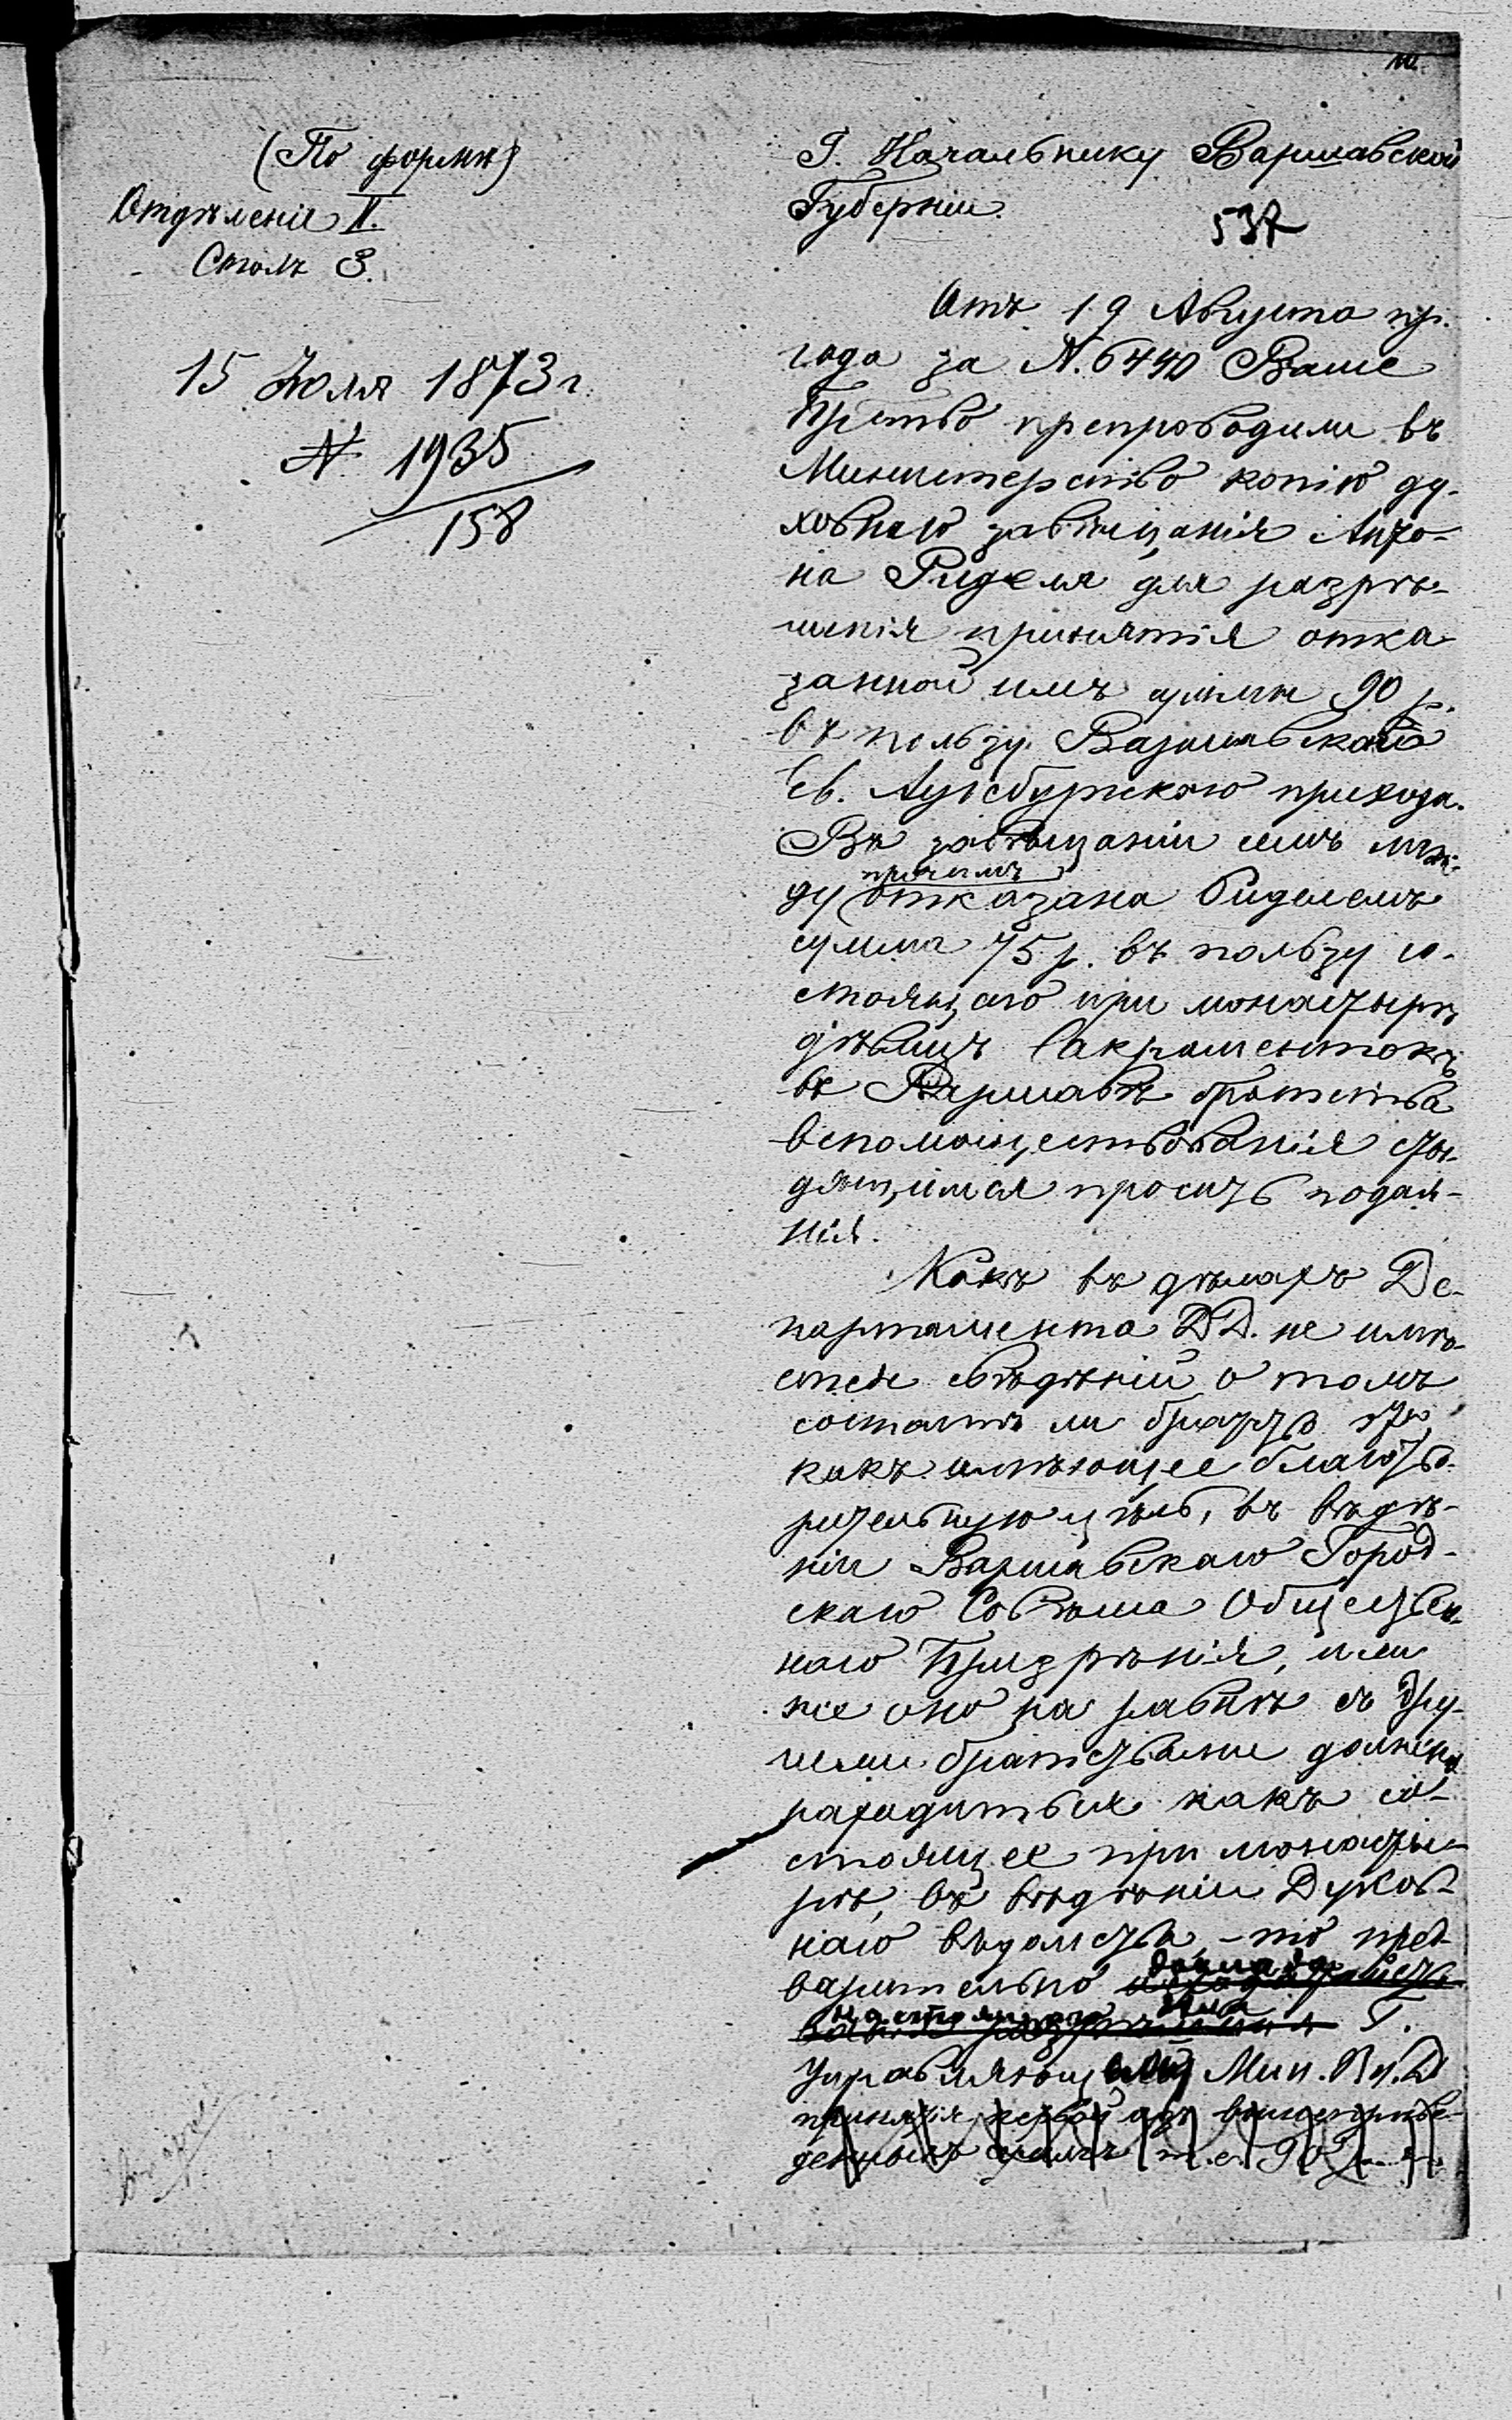 (По формѣ)
Отдѣленіе II.
Столъ 3.
15 Юля 1873 г.
№ 1935
158
Г. Начальнику Варшавской
Губерніи.
537
Отъ 19 Августа пр.
года за N. 6440 Ваше
Пр-ство препроводили въ
Министерство копію ду-
ховнаго завѣщанія Анто-
на Риделя для разрѣ-
шенія принятія отка-
занной имъ суммы 90 р.
въ пользу Варшавскаго
Ев. Аугсбургскаго прихода.
Въ завѣщаніи семъ меж-
прочимъ
ду отказана Риделемъ
сумма 75 р. въ пользу со-
стоящаго при монастырѣ
дѣвицъ Сакраментокъ
въ Варшавѣ братства
вспомоществованія сты-
дящимся просить подая-
нія.
Какъ въ дѣлахъ Де-
партамента ДД. не имѣ-
ется свѣдѣній о томъ
состоитъ ли братство это,
какъ имѣющее благотво-
рительную цѣль, въ вѣдѣ-
ніи Варшавскаго Город-
скаго Совѣта Обществен-
наго Призрѣнія, или
же оно на равнѣ съ дру-
гими братствами должно
находиться какъ со-
стоящее при монасты-
рѣ, въ вѣдѣніи Духов-
наго вѣдомства, – то пред-
доклада
варительно
настоящаго дѣла
Г.
Управляющему Мин. Вн. Д
принятія первой изъ вышеприве-
денныхъ суммъ т. е. 90 р.